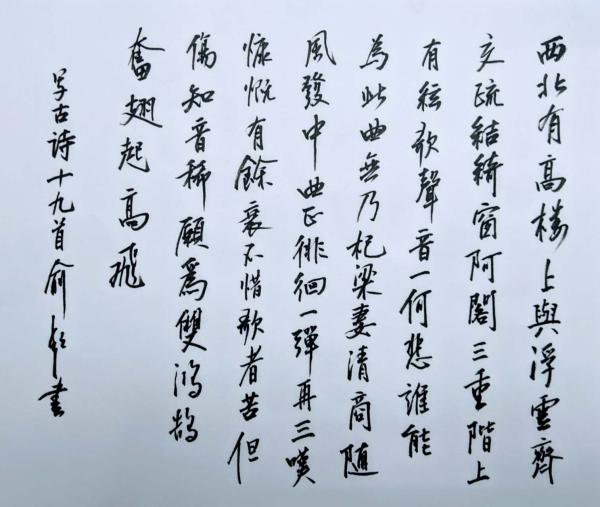 西北有高楼上與浮雲齊
交疏結綺窗阿閣三重階上
有絃歌聲音一何悲誰能
為此曲無乃杞梁妻清商随
風發中曲正徘徊一彈再三嘆
慷慨有餘哀不惜歌者苦但
傷知音稀願爲雙鴻鹄
奮翅起高飛
写古诗十九首俞書